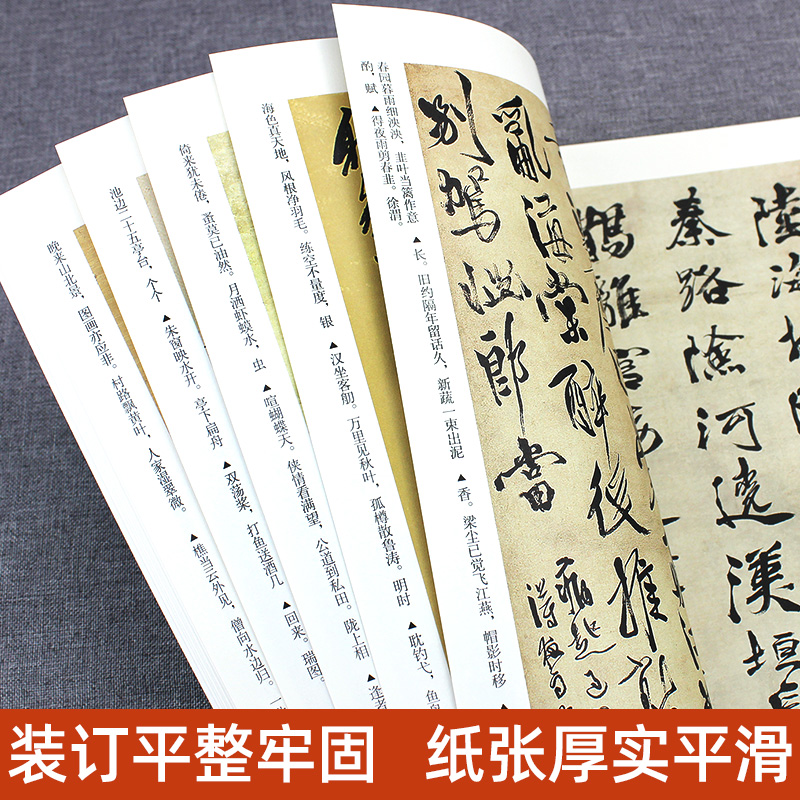 春园暮雨细泱泱，韭叶当篱作意
▲长。旧约隔年留话久，新蔬一束出泥
▲香。梁尘已觉飞江燕，帽影时移
酌，赋
▲得夜雨剪春韭。徐渭。
海色真天地，风根净羽毛。练空不量度，银
▲汉坐客舠。万里见秋叶，孤樽散鲁涛。明时
▲耽钓弋，鱼
倚来犹未倦，蚤莫已油然。月洒虾蟆水，虫
▲喧蝴蝶天。侠情看满望，公道到私田。陇上相
▲逢
池边二十五亭台，个个
▲朱窗映水开。亭下扁舟
▲双荡桨，打鱼送酒几
▲回来。瑞图。
晚来山北景，图画亦应非。村路飘黄叶，人家湿翠微。
▲樵当云外见，僧向水边归。一
秦路險河遶漢垣
亂海棠醉後推
別駕
郎當
装订平整牢固 纸张厚实平滑